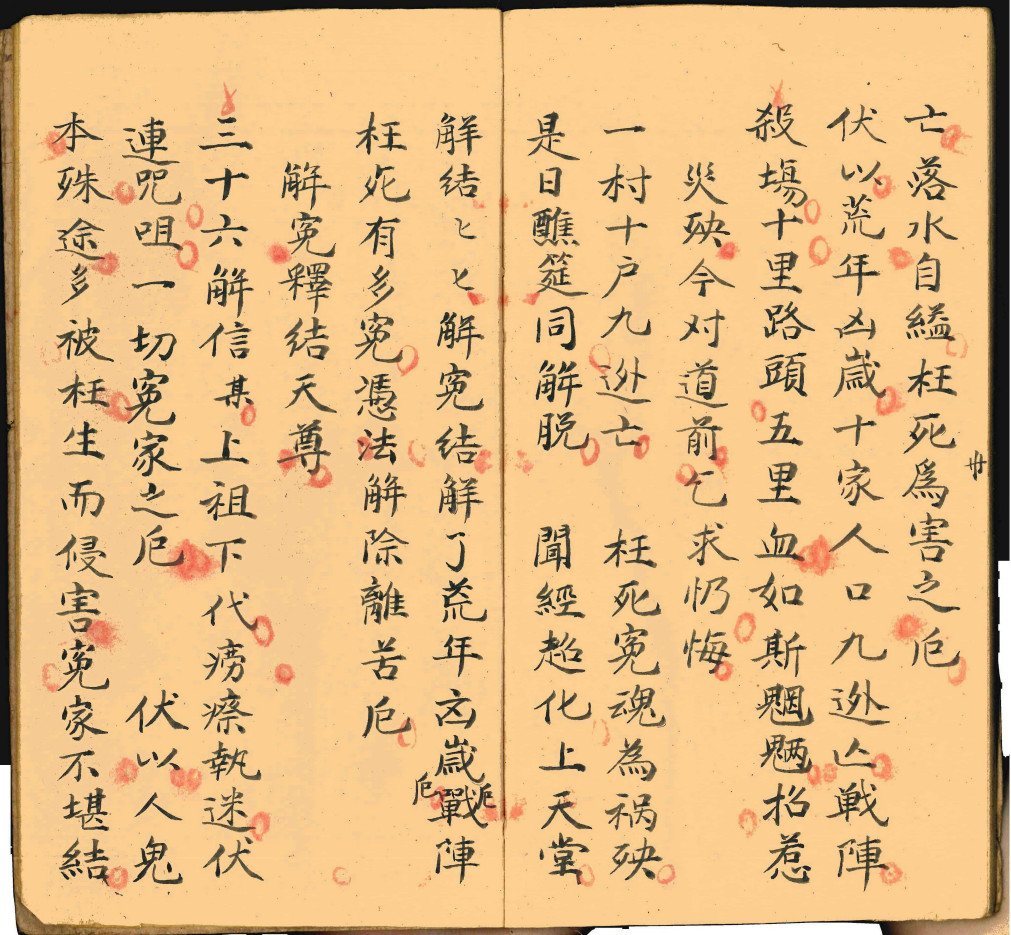 亡落水自縊枉死爲害之厄
卅
伏以荒年凶歲十家人口九迯亡戰陣
殺塲十里路頭五里血如斯魍魎招惹
災殃今对道前乞求忏悔
一村十户九迯亡 枉死寃魂為祸殃
是日醮筵同解脱 聞經超化上天堂
解結〻〻解寃結解了荒年凶歲戰陣
厄 厄
枉死有多寃憑法解除離苦厄
解寃釋結天尊
三十六解信某上祖下代痨瘵執迷伏
連咒咀一切寃家之厄 伏以人鬼
本殊途多被枉生而侵害寃家不堪結